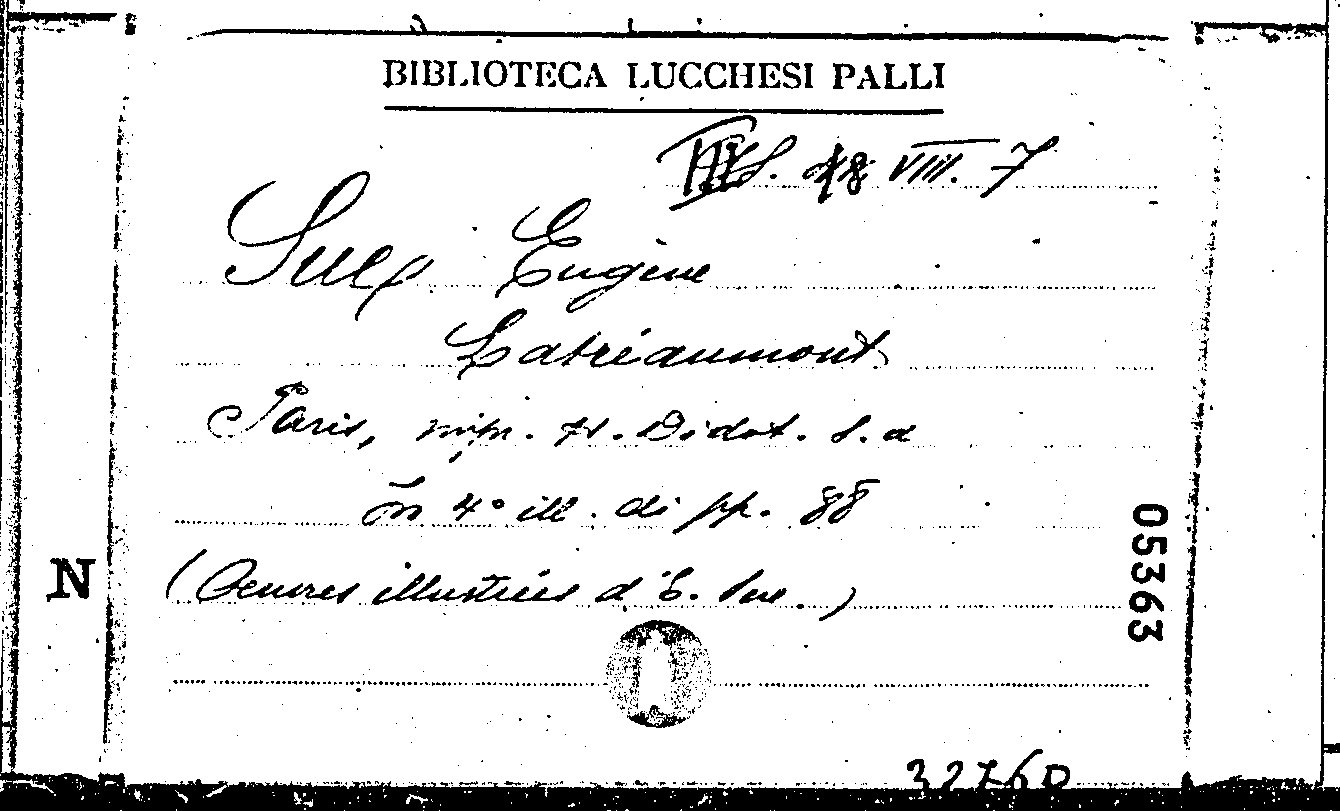 BIBLIOTECA LUCCHESI PALLI
VIII. 7
Sue, Eugène
Latréaumont
Paris, imp. F. Didot. s. a
in 4° ill. di pp. 88
N
05363
(Oeuvres illustrées d'E. Sue.)
32760